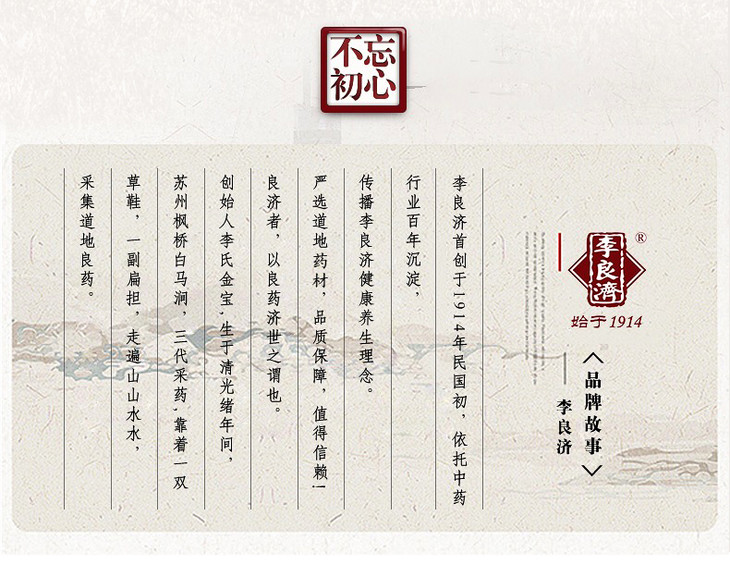 不忘
初心
李良濟
®
始于1914
〈品牌故事〉
李良济
李良济首创于1914年民国初，依托中药
行业百年沉淀，
传播李良济健康养生理念。
严选道地药材，品质保障，值得信赖！
良济者，以良药济世之谓也。
创始人李氏金宝,生于清光绪年间，
苏州枫桥白马涧，三代采药,靠着一双
草鞋，一副扁担，走遍山山水水，
采集道地良药。